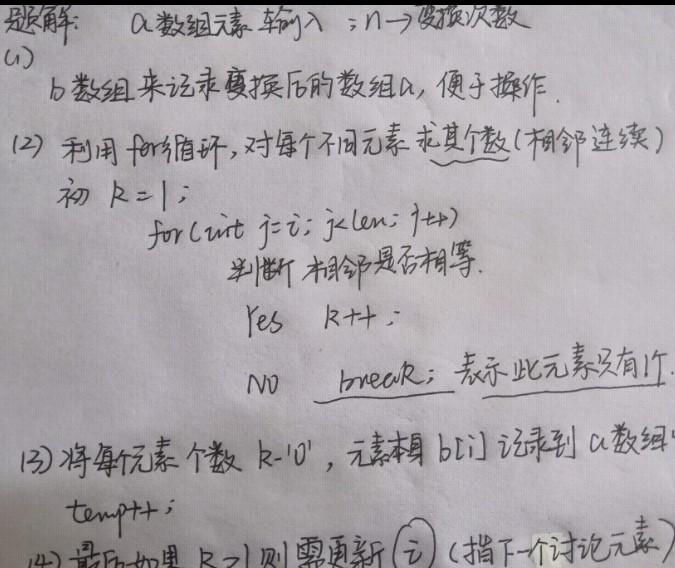 题解: a数组元素输入 ; n→变换次数
(1)
b数组来记录变换后的数组a, 便于操作.
(2) 利用for循环, 对每个不同元素求其个数(相邻连续)
初 k=1;
for(int j=i; j<len; j++)
判断 相邻是否相等.
Yes k++;
NO break; 表示此元素只有1个.
(3) 将每个元素个数 k-'0', 元素本身 b[i] 记录到 a数组中
temp++;
(4) 最后如果 k>1则需更新 i (指下一个讨论元素)